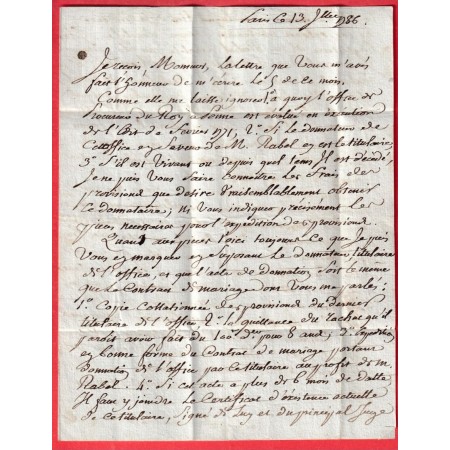 Paris Ce 13. Jbre 1786.
Je reçois, Monsieur, la lettre que vous m'avés
fait l'honneur de m'ecrire le 5 de ce mois.
Comme elle me laisse ignorer 1° a quoy l'office de
Procureur du Roy dont est evalué en execution
de l'Edit de fevrier 1771, 2° Si le Donnateur de
Cet office en faveur de M. Rabel en est le titulaire,
3° S'il est vivant ou depuis quel tems Il est decédé,
Je ne puis vous faire connoitre les frais des
provisions que desire vraisemblablement obtenir
le donnataire, ni vous indiquer precisement les
pieces necessaires pour l'expedition des provisions.
Quant aux pieces Voici toujours ce que Je puis
vous en marquer en suposant le Donnateur titulaire
de l'office, et que l'acte de Donnation soit le meme
que le Contract de mariage dont vous me parlés:
1° Copie Collationnée des provisions du dernier
titulaire de l'office, 2° la quittance du rachat qu'il
doit avoir fait du 100e der pour 8 ans, 3° Expedition
en bonne forme du Contrat de mariage portant
donnation de l'office par le titulaire au profit de M.
Rabel 4° Si cet acte a plus de 6 mois de datte
Il faut y joindre le Certificat d'existence actuelle
de ce titulaire, signé de luy et du principal Juge